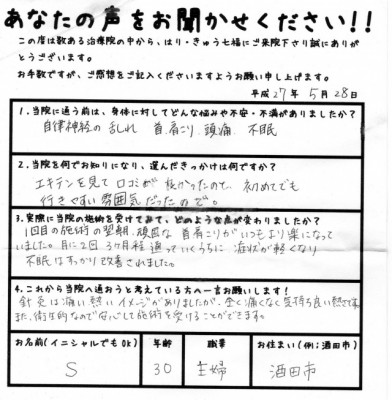 あなたの声をお聞かせください!!
この度は数ある治療院の中から、はり・きゅう七福にご来院下さり誠にありが
とうございます。
お手数ですが、ご感想をご記入くださいますようお願い申し上げます。
平成27年 5月 28日
1.当院に通う前は、身体に対してどんな悩みや不安・不満がありましたか?
自律神経の乱れ 首肩こり、頭痛、不眠
2.当院を何でお知りになり、選んだきっかけは何ですか?
エキテンを見て口コミが良かったので、初めてでも
行きやすい雰囲気だったので。
3.実際に当院の施術を受けてみて、どのような点が変わりましたか?
1回目の施術の翌朝、頑固な首肩こりがいつもより楽になって
いました。月に2回 3ヶ月程 通っていくうちに 症状が軽くなり
不眠はすっかり改善されました。
4.これから当院へ通おうと考えている方へ一言お願いします!
針灸は痛い熱いイメージがありましたが、全く痛くなく気持ち良い熱さです。
また、衛生的なので安心して施術を受けることができます。
お名前(イニシャルでもOK) 年齢 職業 お住まい(例:酒田市)
S 30 主婦 酒田市